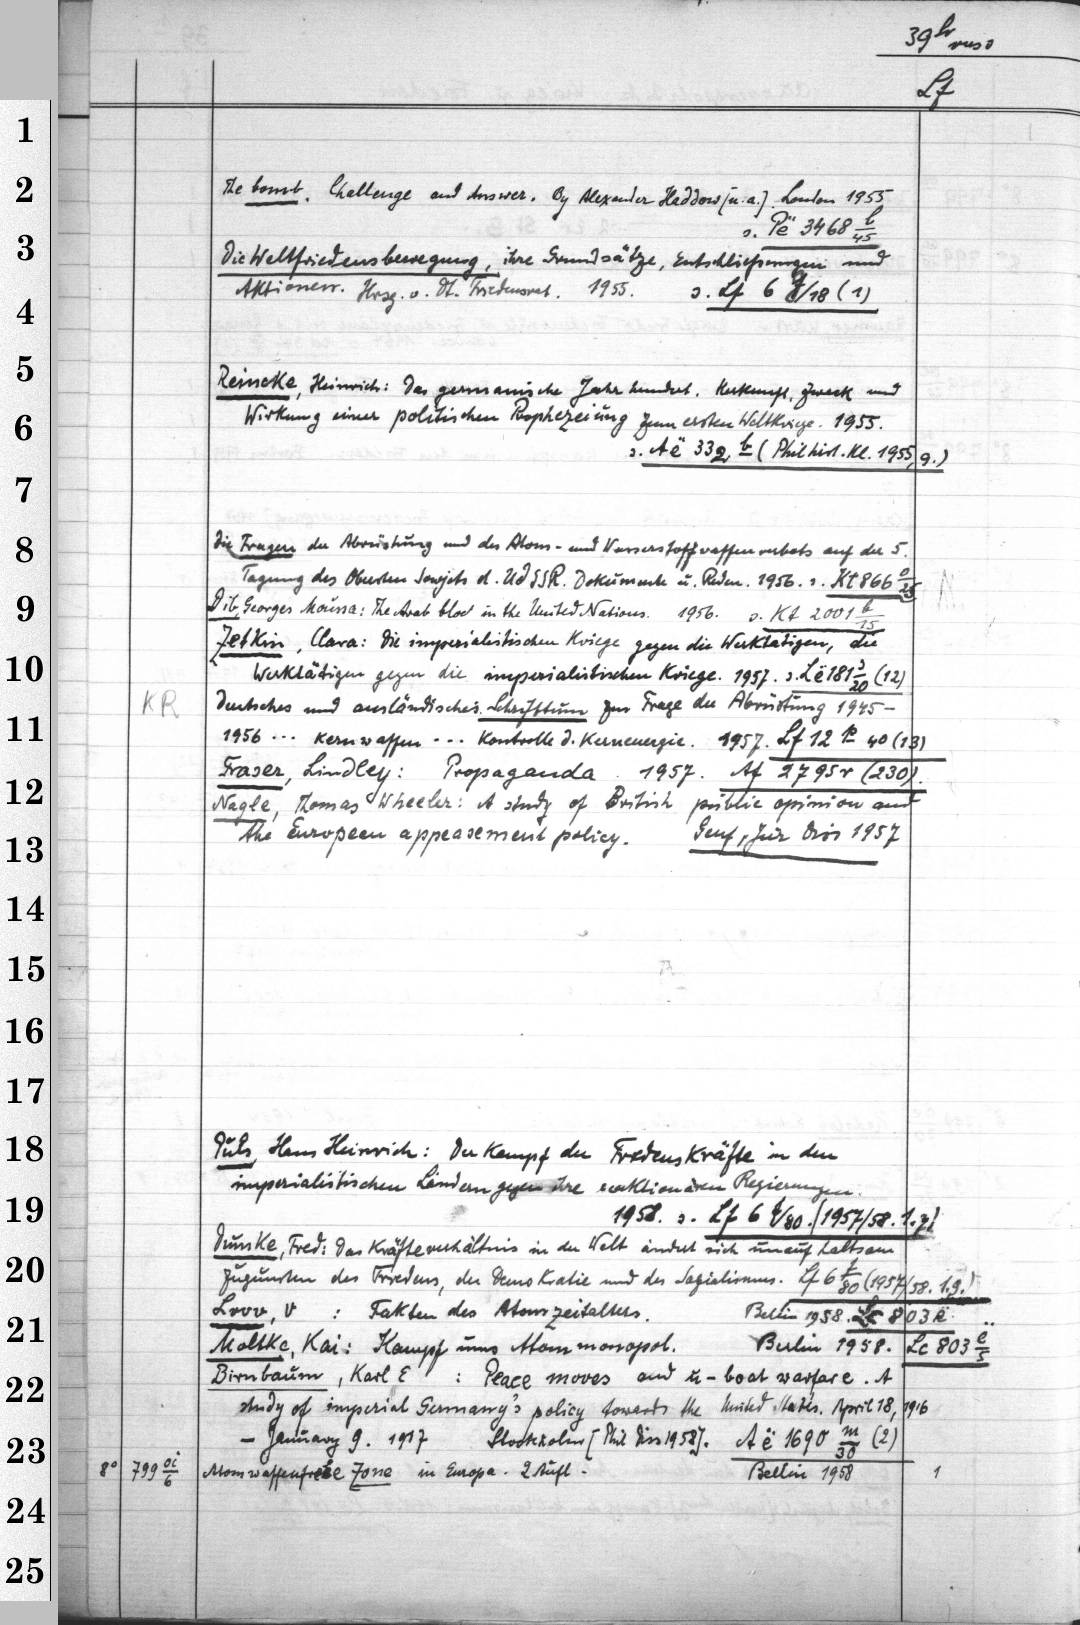 39b
verso
Lf
1
2
The bomb. Challenge and Answer. By Alexander Haddow [u.a.]. London 1955
s. Pë 3468 b/45
3
Die Weltfriedensbewegung, ihre Grundsätze, Entschließungen und
Aktionen. Hrsg. v. Dt. Friedensrat. 1955. s. Lf 6 /18 (1)
4
5
Reincke, Heinrich: Das germanische Jahrhundert. Herkunft, Zweck und
6
Wirkung einer politischen Prophezeiung zum ersten Weltkriege. 1955.
s. Aë 332 b (Philhist. Kl. 1955, 9.)
7
8
Die Fragen der Abrüstung und des Atom- und Wasserstoffwaffenverbots auf der 5.
Tagung des Obersten Sowjets d. UdSSR. Dokumente u. Reden. 1956. s. Kt 866 o/25
9
Dib, Georges Moussa: The Arab bloc in the United Nations. 1956. s. Kt 2001 b/15
Zetkin, Clara: Die imperialistischen Kriege gegen die Werktätigen, die
10
Werktätigen gegen die imperialistischen Kriege. 1957. s. Lë 181 s/20 (12)
KR Deutsches und ausländisches Schrifttum zur Frage der Abrüstung 1945-
11
1956 ... Kernwaffen ... Kontrolle d. Kernenergie. 1957. Lf 12 40 (13)
Fraser, Lindley: Propaganda. 1957. Af 2795r (230).
12
Nagle, Thomas Wheeler: A study of British public opinion and
the European appeasement policy. Genf, Jur Diss 1957
13
14
15
16
17
18
Puls, Hans Heinrich: Der Kampf der Friedenskräfte in den
imperialistischen Ländern gegen ihre reaktionären Regierungen.
19
1958. s. Lf 6 t/80. (1957/58. 1.7)
Dunske, Fred: Das Kräfteverhältnis in der Welt ändert sich unaufhaltsam
20
zugunsten des Friedens, der Demokratie und des Sozialismus. Lf 6 t/80 (1957/58. 1.9.)
Lvov, V : Fakten des Atomzeitalters. Berlin 1958. 803
21
Moltke, Kai: Kampf ums Atommonopol. Berlin 1958. Lc 803 e/5
22
Birnbaum, Karl E : Peace moves and u-boat warfare. A
study of imperial Germany's policy towards the United States. April 18, 1916
23
- January 9. 1917 Stockholm [Phil Diss 1958]. Aë 1690 m/30 (2)
8° 799 oi/6 Atomwaffenfreie Zone in Europa. 2 Aufl. Berlin 1958 1
24
25